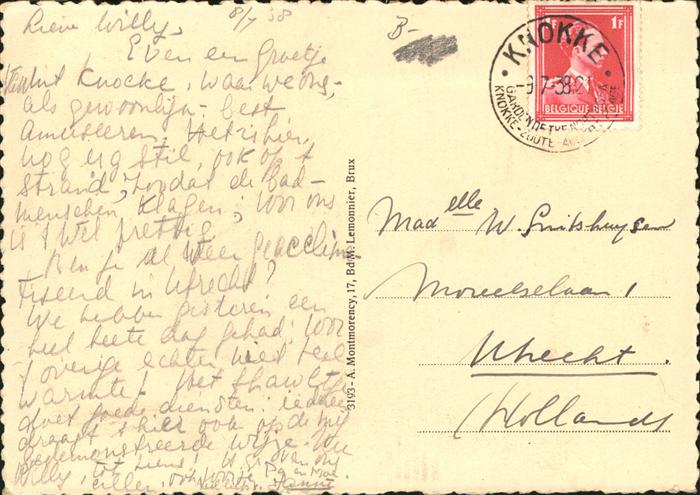 8/7 '38
Lieve Willy,
Even een Groetje
vanuit Knocke, waar we ons,
als gewoonlijk - best
amuseeren. Het is hier,
nog erg stil, ook op 't
strand, zoodat de bad-
menschen klagen; voor ons
is 't wel prettig.
Ben je al weer geacclima
tiseerd in Utrecht?
We hebben gisteren een
heel heete dag gehad; voor
't overige echter niet veel
warmte! Het shawltje
doet goede diensten: iedereen
draagt 't hier ook op de
gedemonstreerde wijze.
Willy, tot ziens!
B-
KNOKKE
-9-7-38
KNOKKE-ZOUTE
1F
1F
BELGIQUE-BELGIE
3193 - A. Montmorency, 17, Bd M. Lemonnier, Brux
Mad elle W. Smitshuysen
Moreelselaan 1
Utrecht.
(Holland)